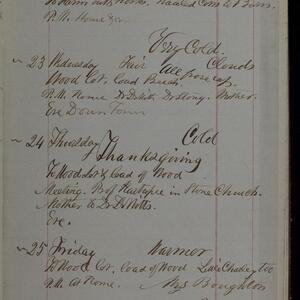 to Barn out horses. Hauled Corn to Barn.
P.M. Home &c
Very Cold.
23 Wednesday Fair Clouds
Wood Lot, Load Brush All froze up
P.M. Home Dr DeWitt Dr Story. Mother.
Eve Down Town
24 Thursday Cold
Thanksgiving
To Wood Lot & Load of Wood
Meeting. Prof in Stone Church.
Mother to Dr DeWitts.
Eve.
25 Friday Warmer
To Wood Lot, Load of Wood Little Charley too
P.M. At Home. Mrs Boughton